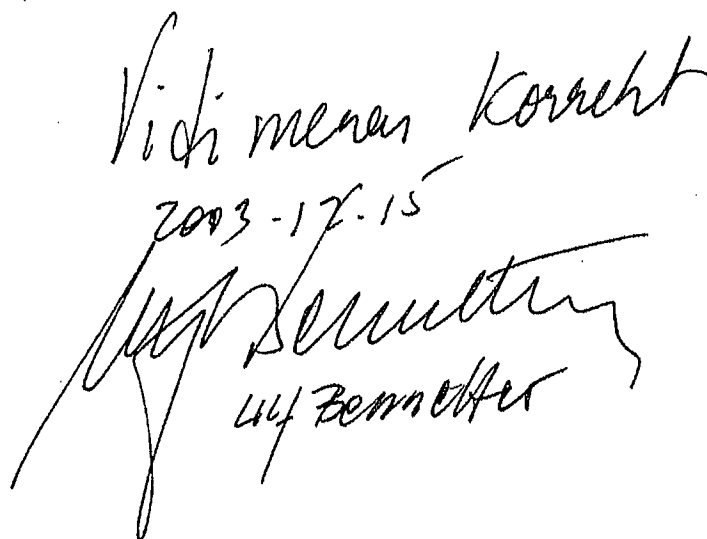 Vidimeras Korrekt
2003-12-15
Ulf Bennetter
Ulf Bennetter